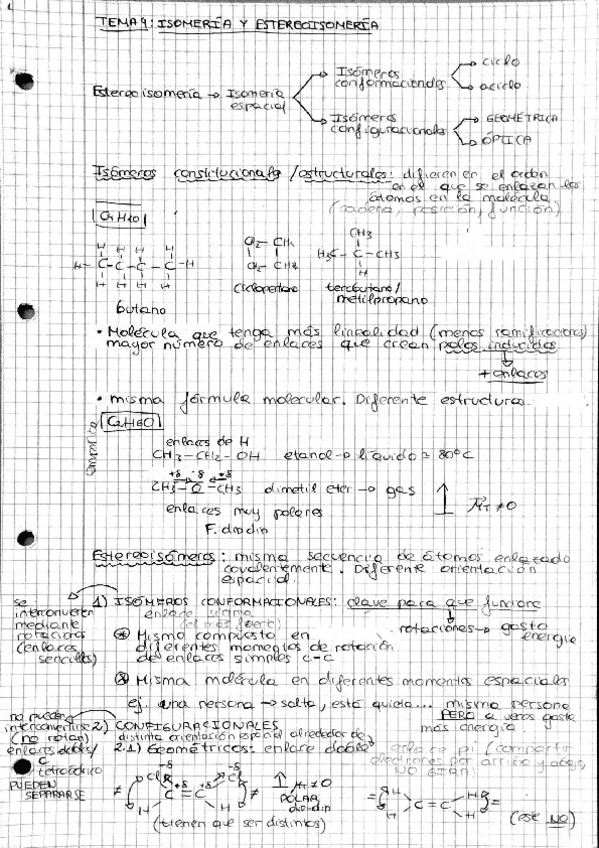 TEMA 9: ISOMERÍA Y ESTEREOISOMERÍA
Estereoisomería → Isomería espacial
Isómeros conformacionales
ciclo
aciclo
Isómeros configuracionales
GEOMÉTRICA
ÓPTICA
Isómeros constitucionales / estructurales: difieren en el orden
en el que se enlazan los
átomos en la molécula
(cadena, posición, función)
CH3
H3C - C - CH3
H
butano
metilpropano
• Molécula que tenga más linealidad (menos ramificaciones)
mayor número de enlaces que crean polos inducidos
+ enlaces
• misma fórmula molecular. Diferente estructura.
C2H6O
enlaces de H
CH3 - CH2 - OH etanol → líquido 80ºC
CH3 - O - CH3 dimetil eter → gas
enlaces muy polares
F. dip dip
Estereoisómeros: misma secuencia de átomos enlazado
covalentemente. Diferente orientación
espacial.
se
interconvierten
mediante
rotaciones
(enlaces
sencillos)
1) ISÓMEROS CONFORMACIONALES: clave para que funcione
Mismo compuesto en
diferentes momentos de rotación
de enlaces simples C-C
rotaciones → gasto
energía
Misma molécula en diferentes momentos espaciales
ej. una persona → salta, está quieta... misma persona
PERO a veces gasta
más energía
no pueden
interconvertirse
(no rotan)
enlaces dobles/
C
tetraédrico
PUEDEN
SEPARARSE
2) CONFIGURACIONALES
distinta orientación espacial alrededor de
2.1) Geométricos: enlace doble
enlace pi (comparte
electrones por arriba y abajo,
NO GIRAN)
POLAR
dip-dip
(tienen que ser distintos)
(este NO)